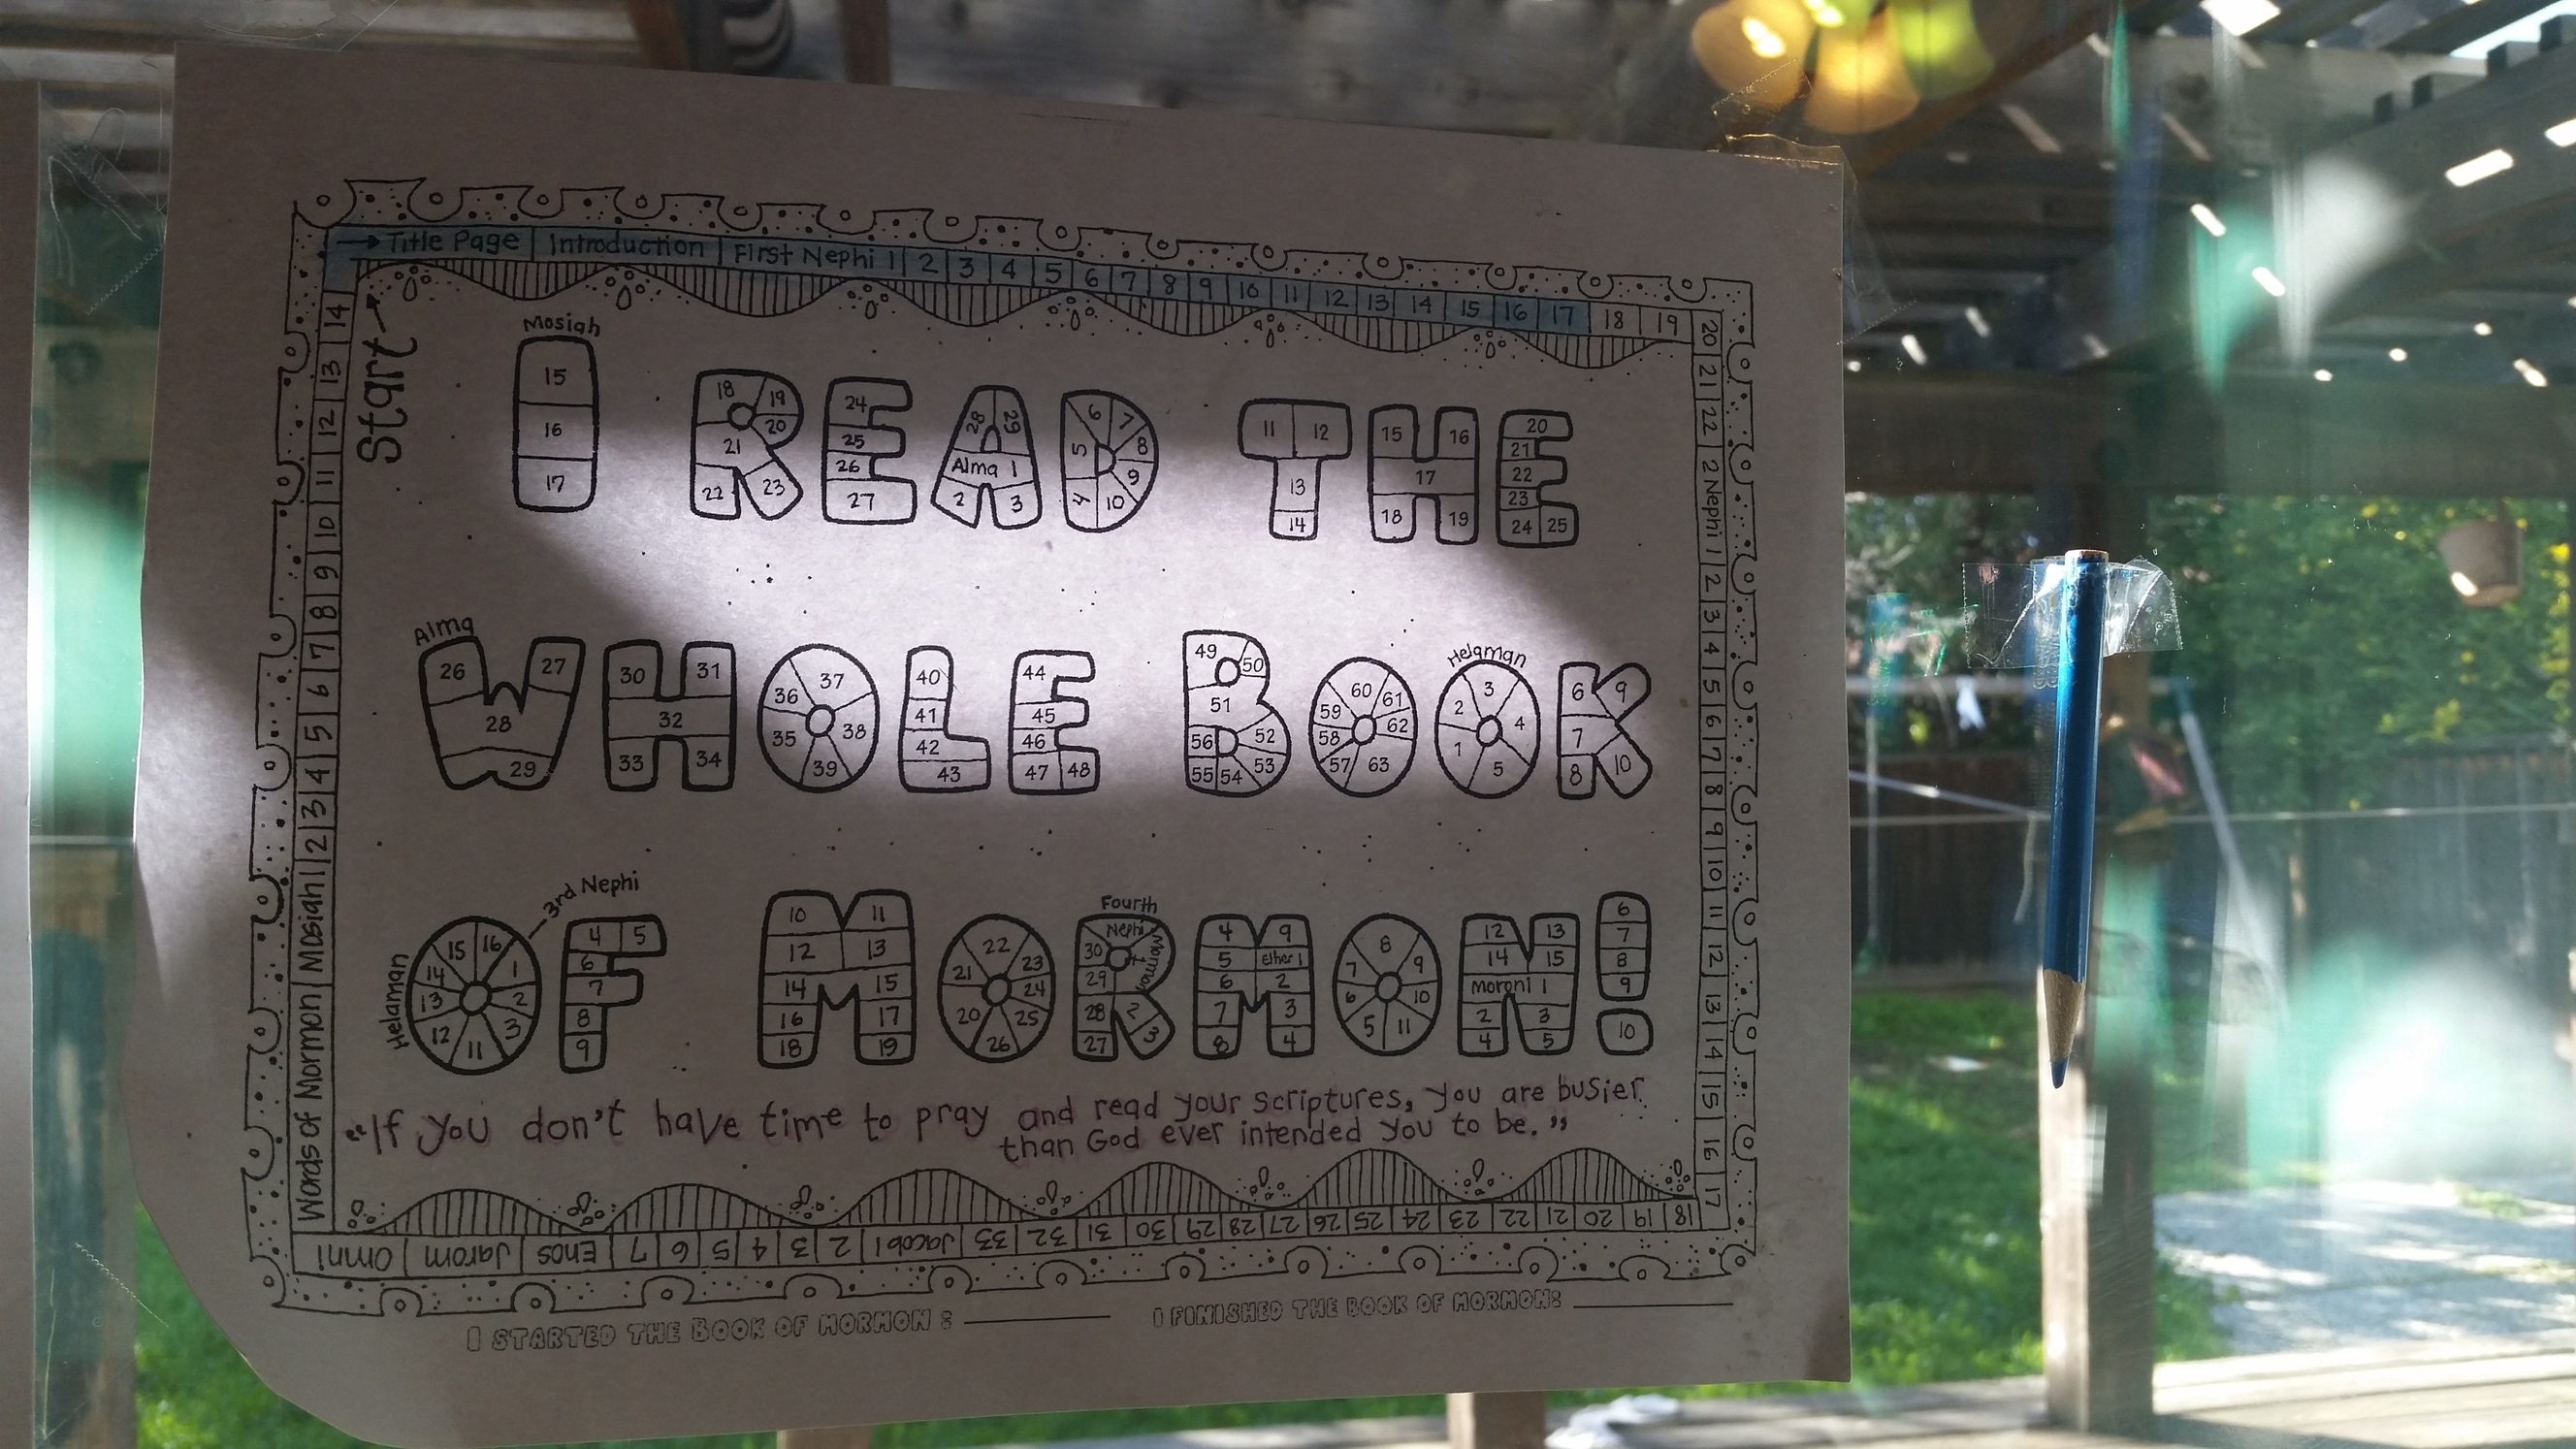 → Title Page Introduction First Nephi 1 2 3 4 5 6 7 8 9 10 11 12 13 14 15 16 17 18 19
20 21 22 2 Nephi 1 2 3 4 5 6 7 8 9 10 11 12 13 14 15 16 17
18 19 20 21 22 23 24 25 26 27 28 29 30 31 32 33 Jacob 1 2 3 4 5 6 7 Enos Jarom Omni
Words of Mormon Mosiah 1 2 3 4 5 6 7 8 9 10 11 12 13 14
Start →
Mosiah
I READ THE
15 16 17
18 19 20 21 22 23
24 25 26 27
28 29 Alma 1 2 3
4 5 6 7 8 9 10
11 12 13 14
15 16 17 18 19
20 21 22 23 24 25
Alma
Helaman
WHOLE BOOK
26 27 28 29
30 31 32 33 34
35 36 37 38 39
40 41 42 43
44 45 46 47 48
49 50 51 52 53 54 55 56
57 58 59 60 61 62 63
1 2 3 4 5
6 7 8 9 10
Helaman
3rd Nephi
Fourth
OF MORMON!
11 12 13 14 15 16 1 2 3
4 5 6 7 8 9
10 11 12 13 14 15 16 17 18 19
20 21 22 23 24 25 26
27 28 29 30 Nephi Mormon 1 2 3
4 5 6 7 8 9 Ether 1 2 3 4
5 6 7 8 9 10 11
12 13 14 15 Moroni 1 2 3 4 5
6 7 8 9 10
"If you don't have time to pray and read your scriptures, you are busier
than God ever intended you to be."
I STARTED THE BOOK OF MORMON: I FINISHED THE BOOK OF MORMON: